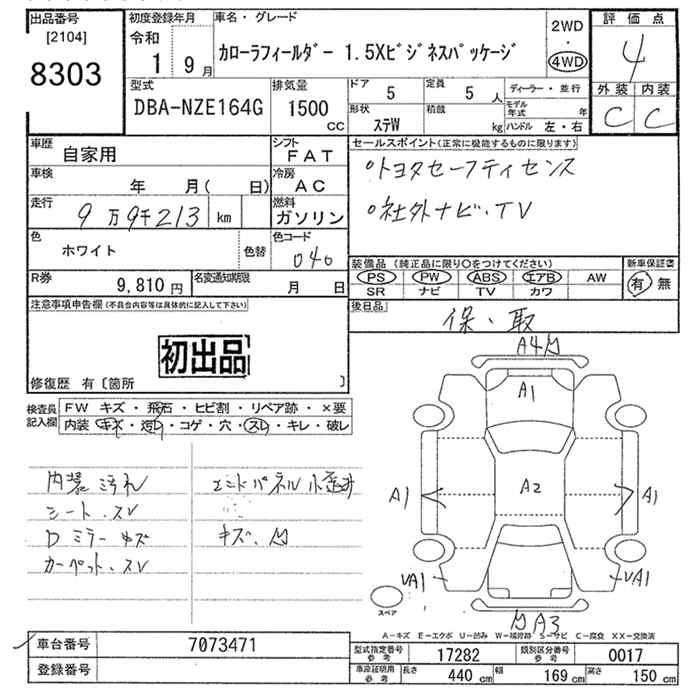 出品番号 [2104] 8303
初度登録年月 令和 1 9月
車名・グレード カローラフィールダー 1.5Xビジネスパッケージ
2WD・4WD
評価点 4
外装 C 内装 C
型式 DBA-NZE164G
排気量 1500 CC
ドア 5
定員 5人
ディーラー・並行
形状 ステW
積載 kg
モデル年式 年
ハンドル 左・右
車歴 自家用
シフト FAT
車検 年 月( 日)
冷房 AC
走行 9万9千213 km
燃料 ガソリン
色 ホワイト
色替
色コード 040
R券 9,810円
名変通知期限 月 日
セールスポイント(正常に機能するものに限ります)
○トヨタセーフティセンス
○社外ナビ・TV
装備品 (純正品に限り○をつけてください)
新車保証書
PS PW ABS エアB AW
有 無
SR ナビ TV カワ
後日品 保・取
注意事項申告欄(不具合内容等は具体的に記入して下さい)
初出品
修復歴 有〔箇所 〕
検査員記入欄
FW キズ・飛石・ヒビ割・リペア跡・×要
内装 キズ・汚レ・コゲ・穴・スレ・キレ・破レ
内装 汚れ
シート.スレ
D ミラー キズ
カーペット.スレ
エンドパネル 小歪
キズ、凹
A4凹
A1
A2
A1
A1
UA1
UA1
凹A3
スペア
A-キズ E-エクボ U-凹み W-補修跡 S-サビ C-腐食 XX-交換済
車台番号 7073471
登録番号
型式指定番号 参考 17282
類別区分番号 参考 0017
車庫証明用 参考 長さ 440 cm 幅 169 cm 高さ 150 cm